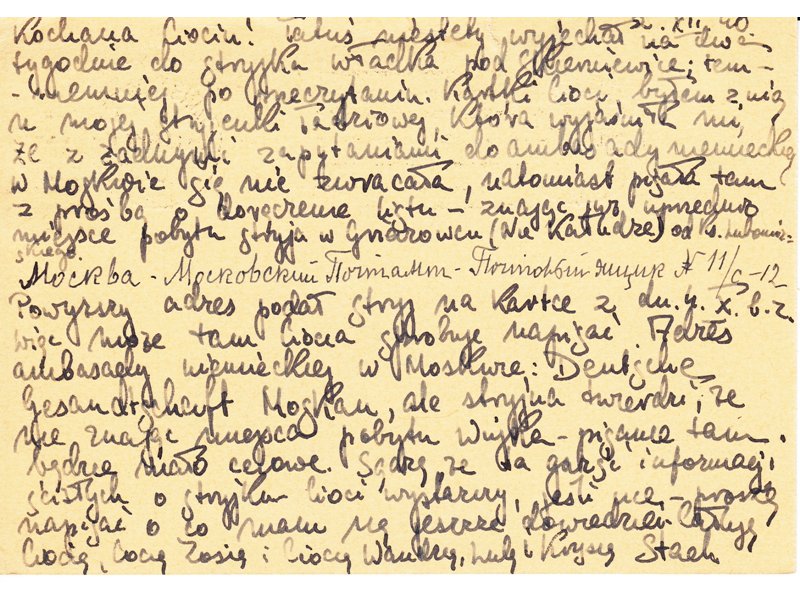 Kochana Ciociu! Tatuś niestety wyjechał na dwa
XII. 40
tygodnie do stryjka Władka pod Skierniewice; tem-
-niemniej po przeczytaniu kartki Cioci byłem z nią
u mojej stryjenki Tadziowej, która wyjaśniła mi,
że z żadnymi zapytaniami do ambasady niemieckiej
w Moskwie się nie zwracała, natomiast pisała tam
z prośbą o doręczenie listu - znając już uprzednio
miejsce pobytu stryja w Griazowcu (nie Kaługze) od ks. Lubomir-
skiego.
Москва - Московский Почтамт - Почтовый ящик № 11/c-12
Powyższy adres podał stryj na kartce z dn. 4. X. b.r.
więc może tam Ciocia spróbuje napisać. Adres
ambasady niemieckiej w Moskwie: Deutsche
Gesandtschaft Moskau, ale stryjna twierdzi, że
nie znając miejsca pobytu Wujka - pisanie tam
będzie mało celowe. Sądzę, że ta garść informacji
ścisłych o stryjku Cioci wystarczy, jeśli nie - proszę
napisać o co mam się jeszcze dowiedzieć. Całuję
Ciocię, Ciocię Zosię i Ciocię Wandzę, Lulę i Krysię Stach